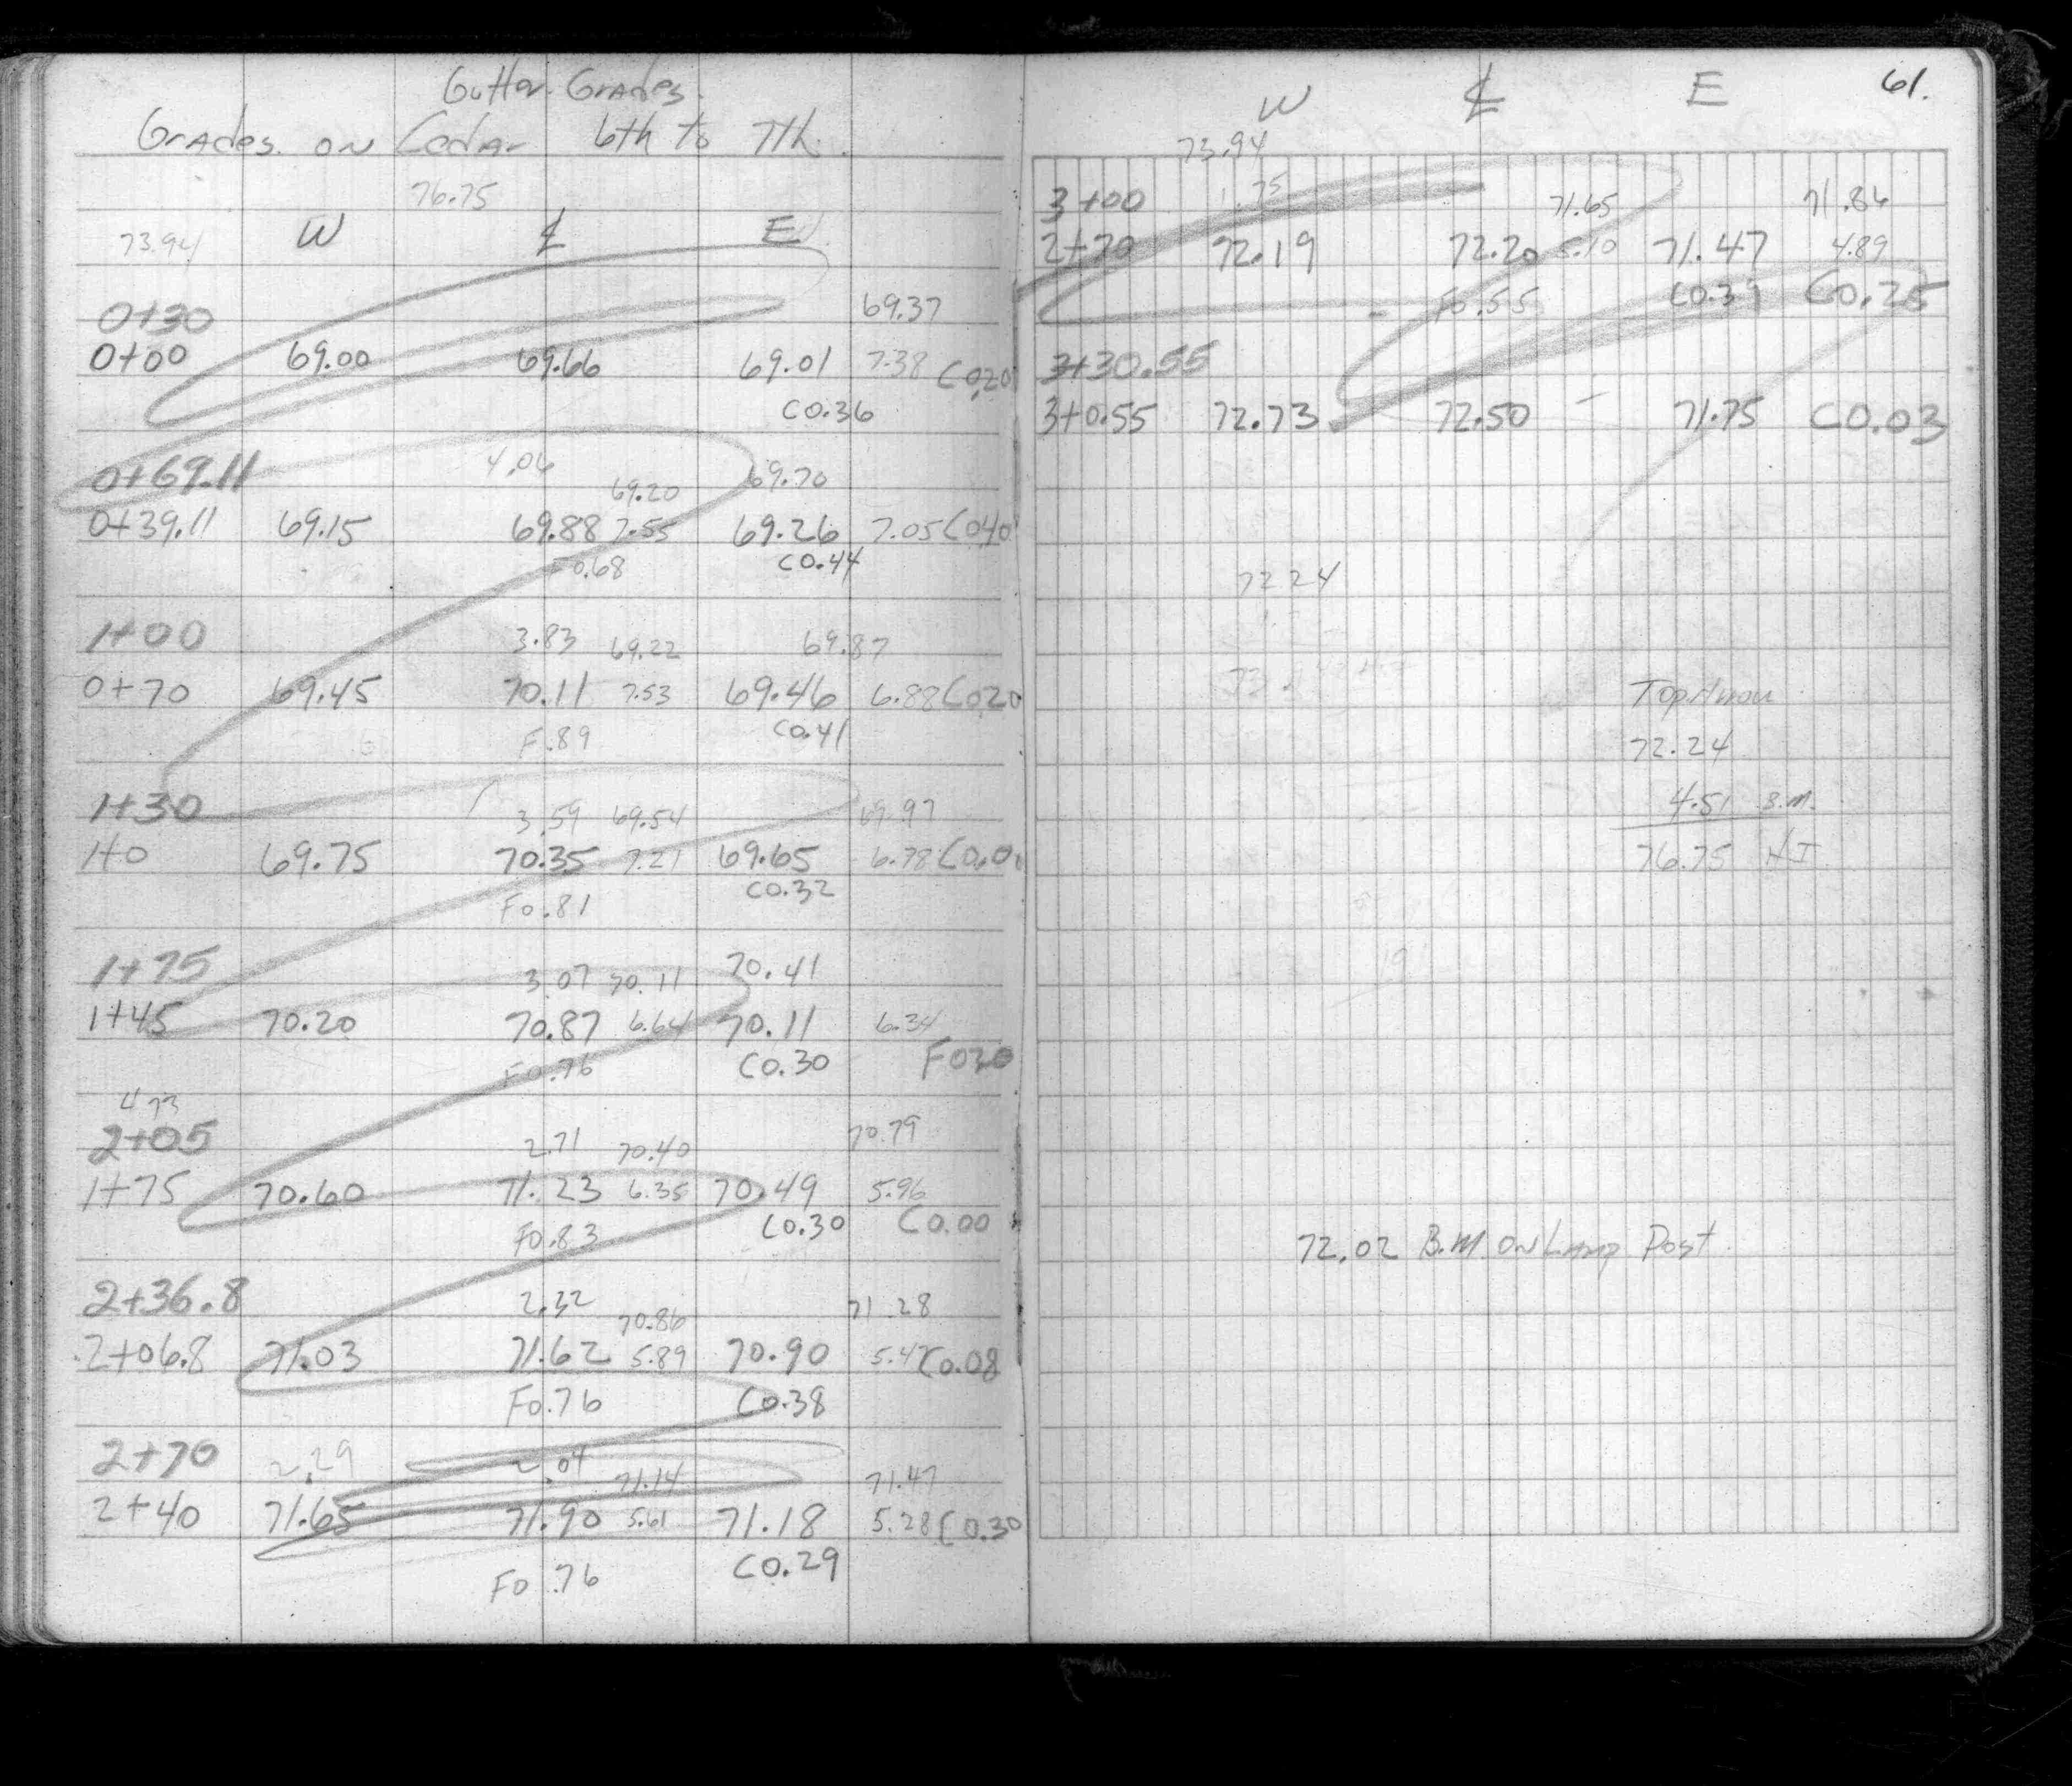 Gutter Grades.
Grades. on Cedar 6th to 7th.
76.75
73.94 W ℄ E
0+30 69.37
0+00 69.00 69.66 69.01 7.38 C0.20
C0.36
0+69.11 4.06 69.20 69.70
0+39.11 69.15 69.88 7.55 69.26 7.05 C040
F0.68 C0.44
1+00 3.83 69.22 69.87
0+70 69.45 70.11 7.53 69.46 6.88 C020
F.89 C0.41
1+30 3.59 69.54 69.97
1+0 69.75 70.35 7.21 69.65 6.78
F0.81 C0.32
1+75 3.07 70.11 70.41
1+45 70.20 70.87 6.64 70.11 6.34
F0.76 C0.30 F020
4 73
2+05 2.71 70.40 70.79
1+75 70.60 71.23 6.35 70.49 5.96
F0.83 C0.30 C0.00
2+36.8 2.32 70.86 71.28
2+06.8 71.03 71.62 5.89 70.90 5.47 C0.08
F0.76 C0.38
2+70 2.29 2.04 71.14 71.47
2+40 71.65 71.90 5.61 71.18 5.28 C0.30
F0.76 C0.29
61.
W ℄ E
73.94
3+00 1.75 71.65 71.86
2+70 72.19 72.20 5.10 71.47 4.89
F0.55 C0.39 C0.25
3+30.55
3+0.55 72.73 72.50 – 71.75 C0.03
72 24
72.24
4.51 B.M.
76.75 H I
72.02 B.M. on Lamp Post.